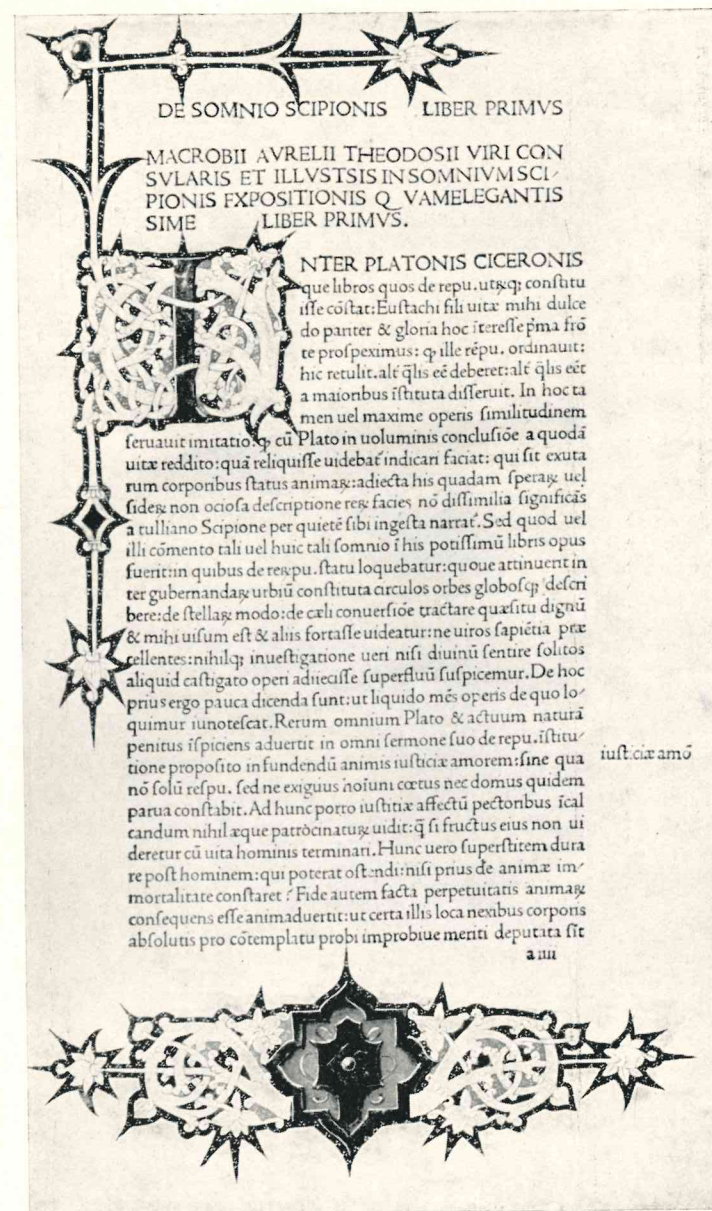 DE SOMNIO SCIPIONIS LIBER PRIMVS
MACROBII AVRELII THEODOSII VIRI CON
SVLARIS ET ILLVSTSIS IN SOMNIVM SCI⸗
PIONIS FXPOSITIONIS Q VAMELEGANTIS
SIME LIBER PRIMVS.
INTER PLATONIS CICERONIS
que libros quos de repu. utꝝqꝫ conſtitu
iſſe cōſtat: Euſtachi fili uitæ mihi dulce
do pariter & gloria hoc ītereſſe p̄ma frō
te proſpeximus: ꝙ ille rēpu. ordinauit:
hic retulit. alt̓ q̄lis eē deberet: alt̓ q̄lis eēt
a maioribus īſtituta diſſeruit. In hoc ta
men uel maxime operis ſimilitudinem
ſeruauit imitatio. ꝙ cū Plato in uoluminis concluſiōe a quodā
uitæ reddito: quā reliquiſſe uidebat̓ indicari faciat: qui ſit exuta
rum corporibus ſtatus animaꝝ: adiecta his quadam ſperaꝝ uel
ſideꝝ non ocioſa deſcriptione reꝝ facies nō diſſimilia ſignificās
a tulliano Scipione per quietē ſibi ingeſta narrat̓. Sed quod uel
illi cōmento tali uel huic tali ſomnio ī his potiſſimū libris opus
fuerit: in quibus de reꝝpu. ſtatu loquebatur: quoue attinuerit in
ter gubernandaꝝ urbiū conſtituta circulos orbes globoſqꝫ deſcri
bere: de ſtellaꝝ modo: de cæli conuerſiōe tractare quæſitu dignū
& mihi uiſum eſt & aliis fortaſſe uideatur: ne uiros ſapiētia præ
cellentes: nihilqꝫ inueſtigatione ueri niſi diuinū ſentire ſolitos
aliquid caſtigato operi adiieciſſe ſuperfluū ſuſpicemur. De hoc
prius ergo pauca dicenda ſunt: ut liquido mēs operis de quo lo⸗
quimur iunoteſcat. Rerum omnium Plato & actuum naturā
penitus īſpiciens aduertit in omni ſermone ſuo de repu. īſtitu⸗
tione propoſito infundendū animis iuſticiæ amorem: ſine qua
nō ſolū reſpu. ſed ne exiguus hoīum cœtus nec domus quidem
parua conſtabit. Ad hunc porro iuſtitiæ affectū pectoribus īcal
candum nihil æque patrocinatuꝝ uidit: q̄ ſi fructus eius non ui
deretur cū uita hominis terminari. Hunc uero ſuperſtitem dura
re poſt hominem: qui poterat oſtendi: niſi prius de animæ im⸗
mortalitate conſtaret? Fide autem facta perpetuitatis animaꝝ
conſequens eſſe animaduertit: ut certa illis loca nexibus corporis
abſolutis pro cōtemplatu probi improbiue meriti deputata ſīt
a iiii
iuſticiæ amō